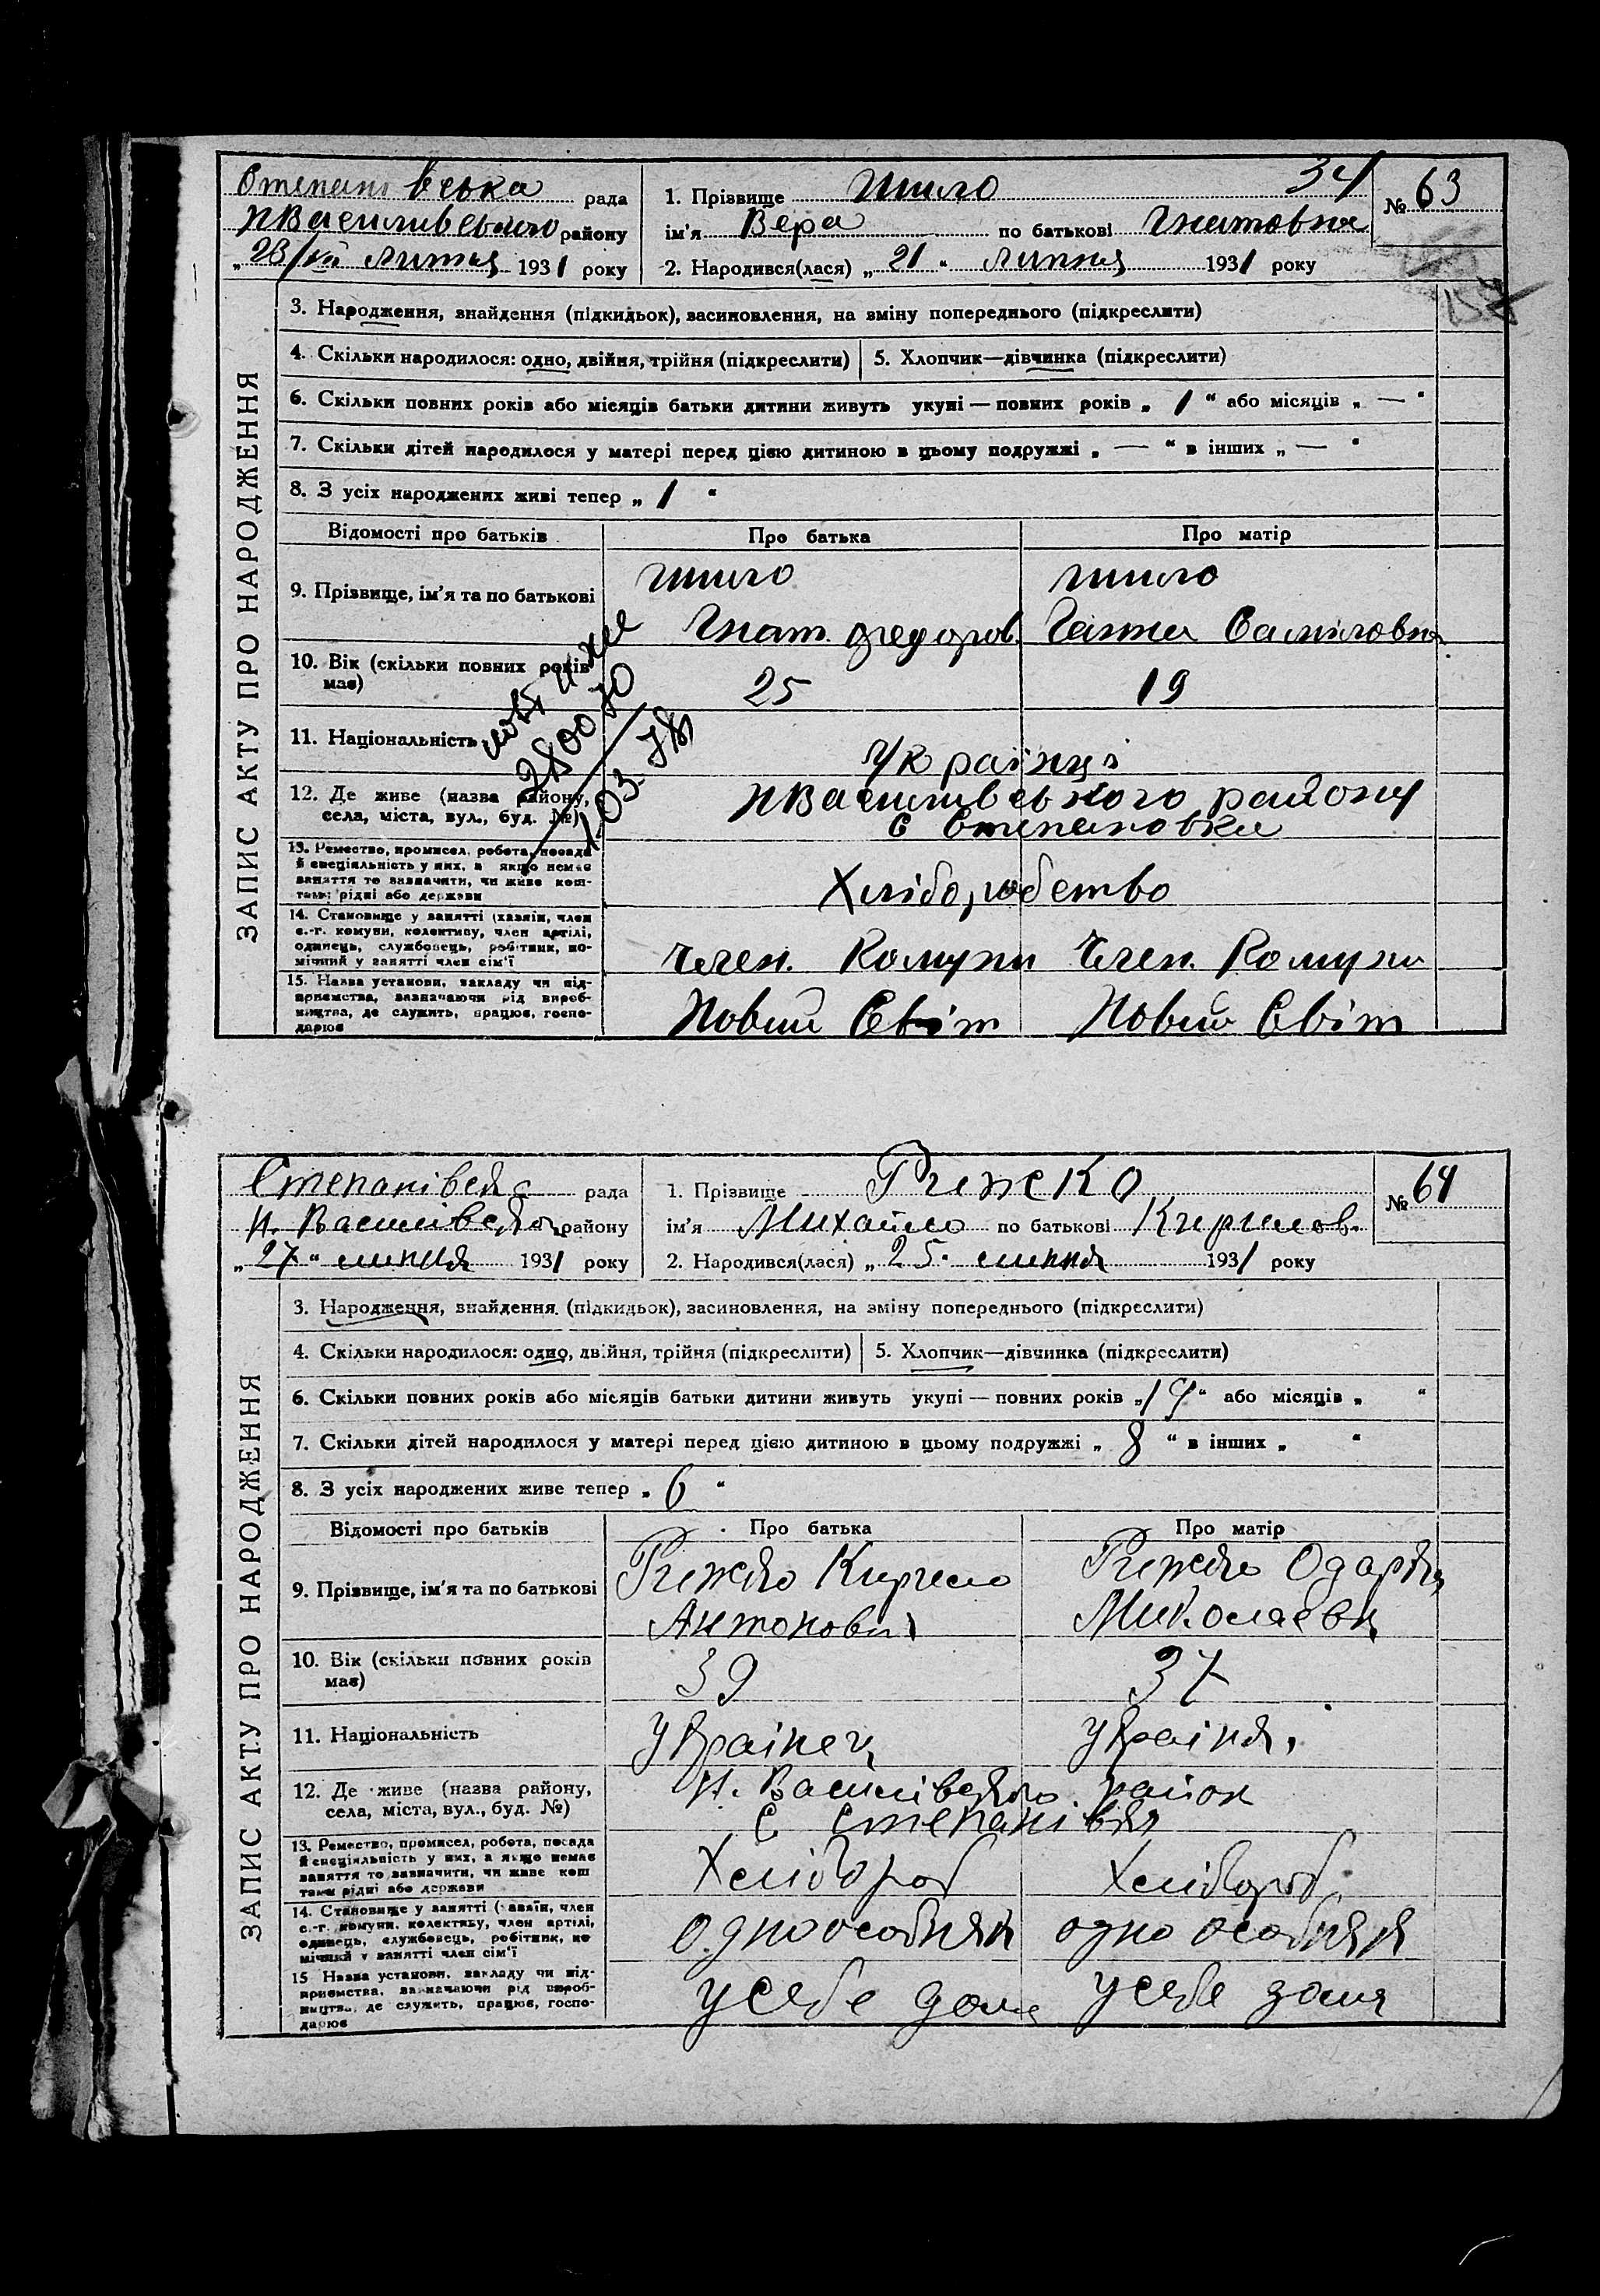 Степановська рада
НВасиливського району
„ 28/VII Липня 1931 року
1. Прізвище Шило
34
№ 63
ім'я Вера по батькові Гнатовна
2. Народився(лася) „ 21 “ Липня 1931 року
157
ЗАПИС АКТУ ПРО НАРОДЖЕННЯ
3. Народження, знайдення (підкидьок), засиновлення, на зміну попереднього (підкреслити)
4. Скільки народилося: одно, двійня, трійня (підкреслити)
5. Хлопчик—дівчинка (підкреслити)
6. Скільки повних років або місяців батьки дитини живуть укупі — повних років „ 1 “ або місяців „ — “
7. Скільки дітей народилося у матері перед цією дитиною в цьому подружжі „ — “ в інших „ — “
8. З усіх народжених живі тепер „ 1 “
Відомості про батьків
Про батька
Про матір
9. Прізвище, ім'я та по батькові
Шило
Гнат Федоров.
Шило
Ганна Самиловна
10. Вік (скільки повних років має)
25
19
11. Національність
Українці
12. Де живе (назва району,
села, міста, вул., буд. №)
НВасиливського району
С Степановка
13. Ремество, промисел, робота, посада
й спеціяльність у них, а якщо немає
заняття то зазначити, чи живе кош-
тами рідні або держави
Хліборобство
14. Становище у занятті (хазяїн, член
с.-г. комуни, колективу, член артілі,
одинець, службовець, робітник, по-
мічний у занятті член сім'ї
Член. Комуни
Член. Комуни
15. Назва установи, закладу чи під-
приємства, зазначаючи рід вироб-
ництва, де служить, працює, госпо-
дарює
Новий Світ
Новий Світ
Степанівська рада
Н. Василівського району
„ 27 “ липня 1931 року
1. Прізвище Рижко
№ 64
ім'я Михайло по батькові Кирилов.
2. Народився(лася) „ 25 “ липня 1931 року
ЗАПИС АКТУ ПРО НАРОДЖЕННЯ
3. Народження, знайдення (підкидьок), засиновлення, на зміну попереднього (підкреслити)
4. Скільки народилося: одно, двійня, трійня (підкреслити)
5. Хлопчик—дівчинка (підкреслити)
6. Скільки повних років або місяців батьки дитини живуть укупі — повних років „ 19 “ або місяців „ “
7. Скільки дітей народилося у матері перед цією дитиною в цьому подружжі „ 8 “ в інших „ “
8. З усіх народжених живе тепер „ 6 “
Відомості про батьків
Про батька
Про матір
9. Прізвище, ім'я та по батькові
Рижко Кирило
Антонович
Рижко Одарка
Миколаевн
10. Вік (скільки повних років має)
39
37
11. Національність
Українец
Українк.
12. Де живе (назва району,
села, міста, вул., буд. №)
Н. Василівського район
С Степанівка
13. Ремество, промисел, робота, посада
й спеціяльність у них, а якщо немає
заняття то зазначити, чи живе кош
тами рідні або держави
Хлібороб
Хлібороб.
14. Становище у занятті (хазяїн, член
с.-г. комуни, колективу, член артілі,
одинець, службовець, робітник, по
мічний у занятті член сім'ї
одноособняк
одноособняк
15 Назва установи, закладу чи під-
приємства, зазначаючи рід вироб-
ництва, де служить, працює, госпо-
дарює
у себе дома
у себе дома